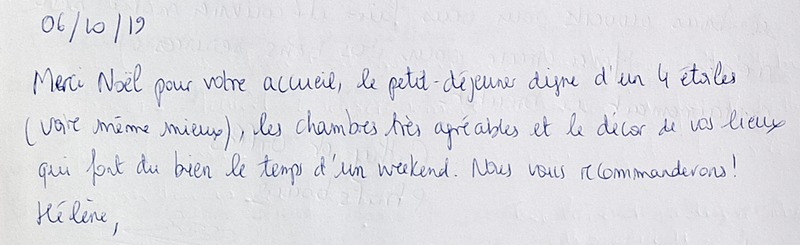 06/10/19
Merci Noël pour votre accueil, le petit-déjeuner digne d'un 4 étoiles
(voire même mieux), les chambres très agréables et le décor de vos lieux
qui font du bien le temps d'un weekend. Nous vous recommanderons!
Hélène,